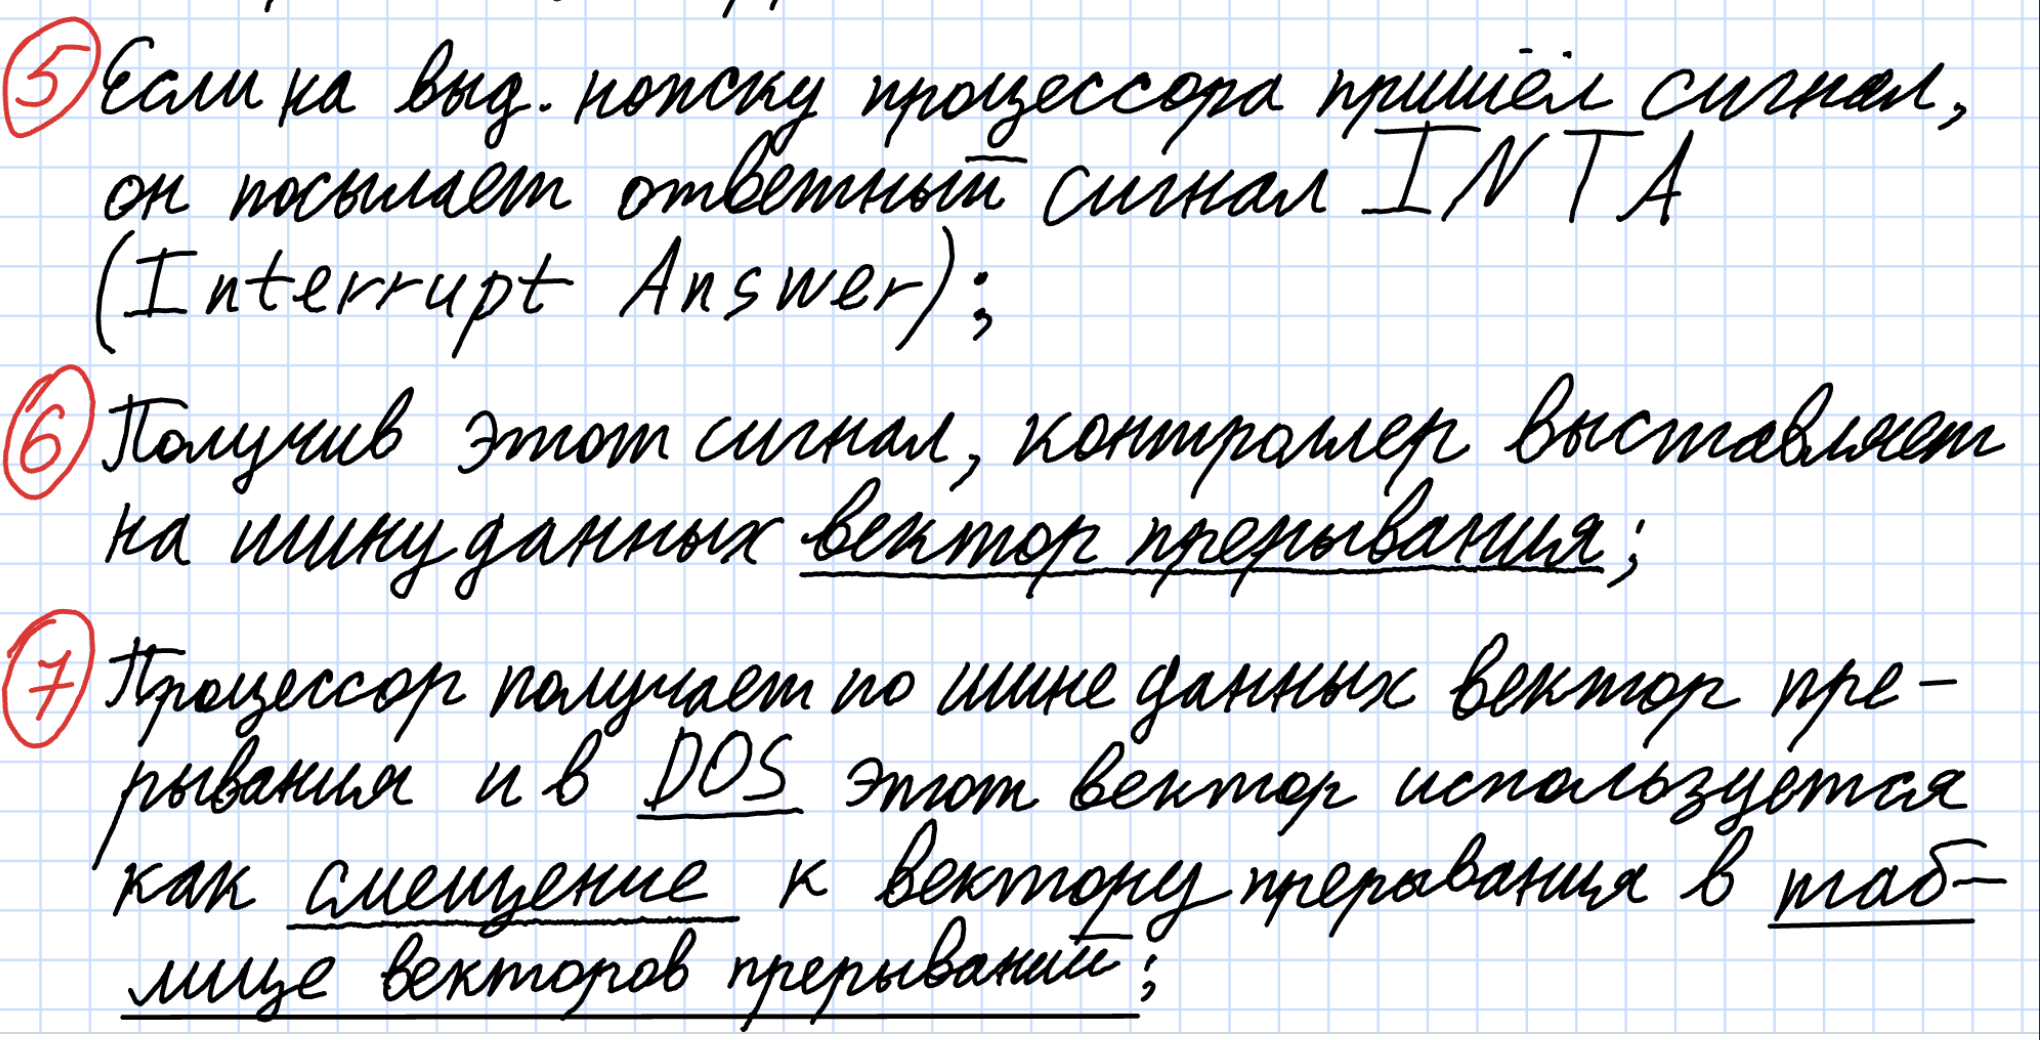 5 Если на выд. ножку процессора пришёл сигнал,
он посылает ответный сигнал INTA
(Interrupt Answer);
6 Получив этот сигнал, контроллер выставляет
на шину данных вектор прерывания;
7 Процессор получает по шине данных вектор пре-
рывания и в DOS этот вектор используется
как смещение к вектору прерывания в таб-
лице векторов прерываний;